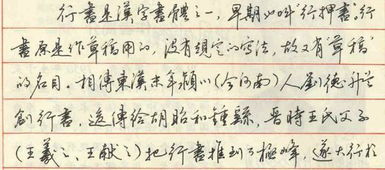 行書是漢字書體之一，早期也叫“行押書”。行
書原是作草稿用的，沒有規定的寫法，故又有“草稿”
的名目。相傳東漢末年潁川(今河南)人劉德升首
創行書，遂傳給胡昭和鍾繇，晉時王氏父子
(王羲之、王献之)把行書推到了極峰，遂大行於